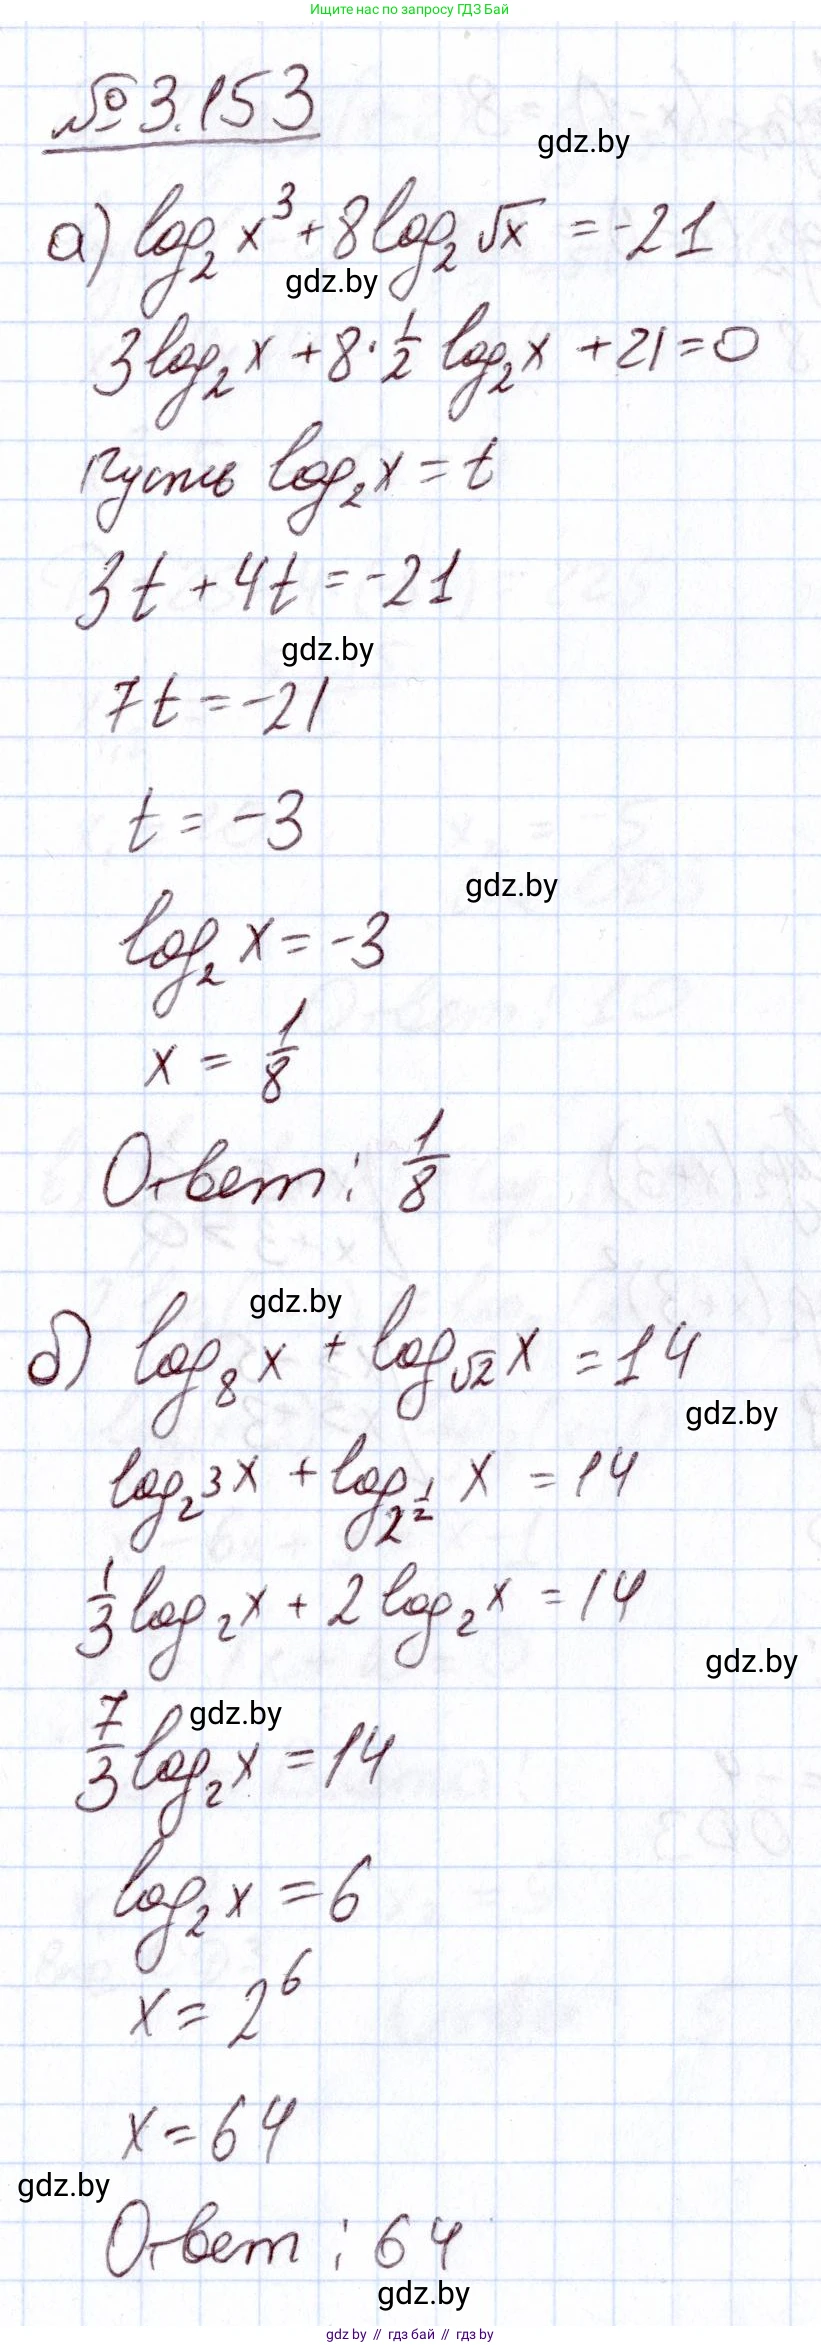 Ищите нас по запросу ГДЗ Бай
№ 3.153
gdz.by
а) log₂ x³ + 8 log₂ √x = -21
gdz.by
3 log₂ x + 8 · 1/2 log₂ x + 21 = 0
Пусть log₂ x = t
3t + 4t = -21
gdz.by
7t = -21
t = -3
gdz.by
log₂ x = -3
x = 1/8
Ответ: 1/8
gdz.by
б) log₈ x + log_√2 x = 14
gdz.by
log_2³ x + log_2^(1/2) x = 14
1/3 log₂ x + 2 log₂ x = 14
gdz.by
gdz.by
7/3 log₂ x = 14
log₂ x = 6
x = 2⁶
x = 64
gdz.by
Ответ: 64
gdz.by
gdz by // гдз бай // gdz by